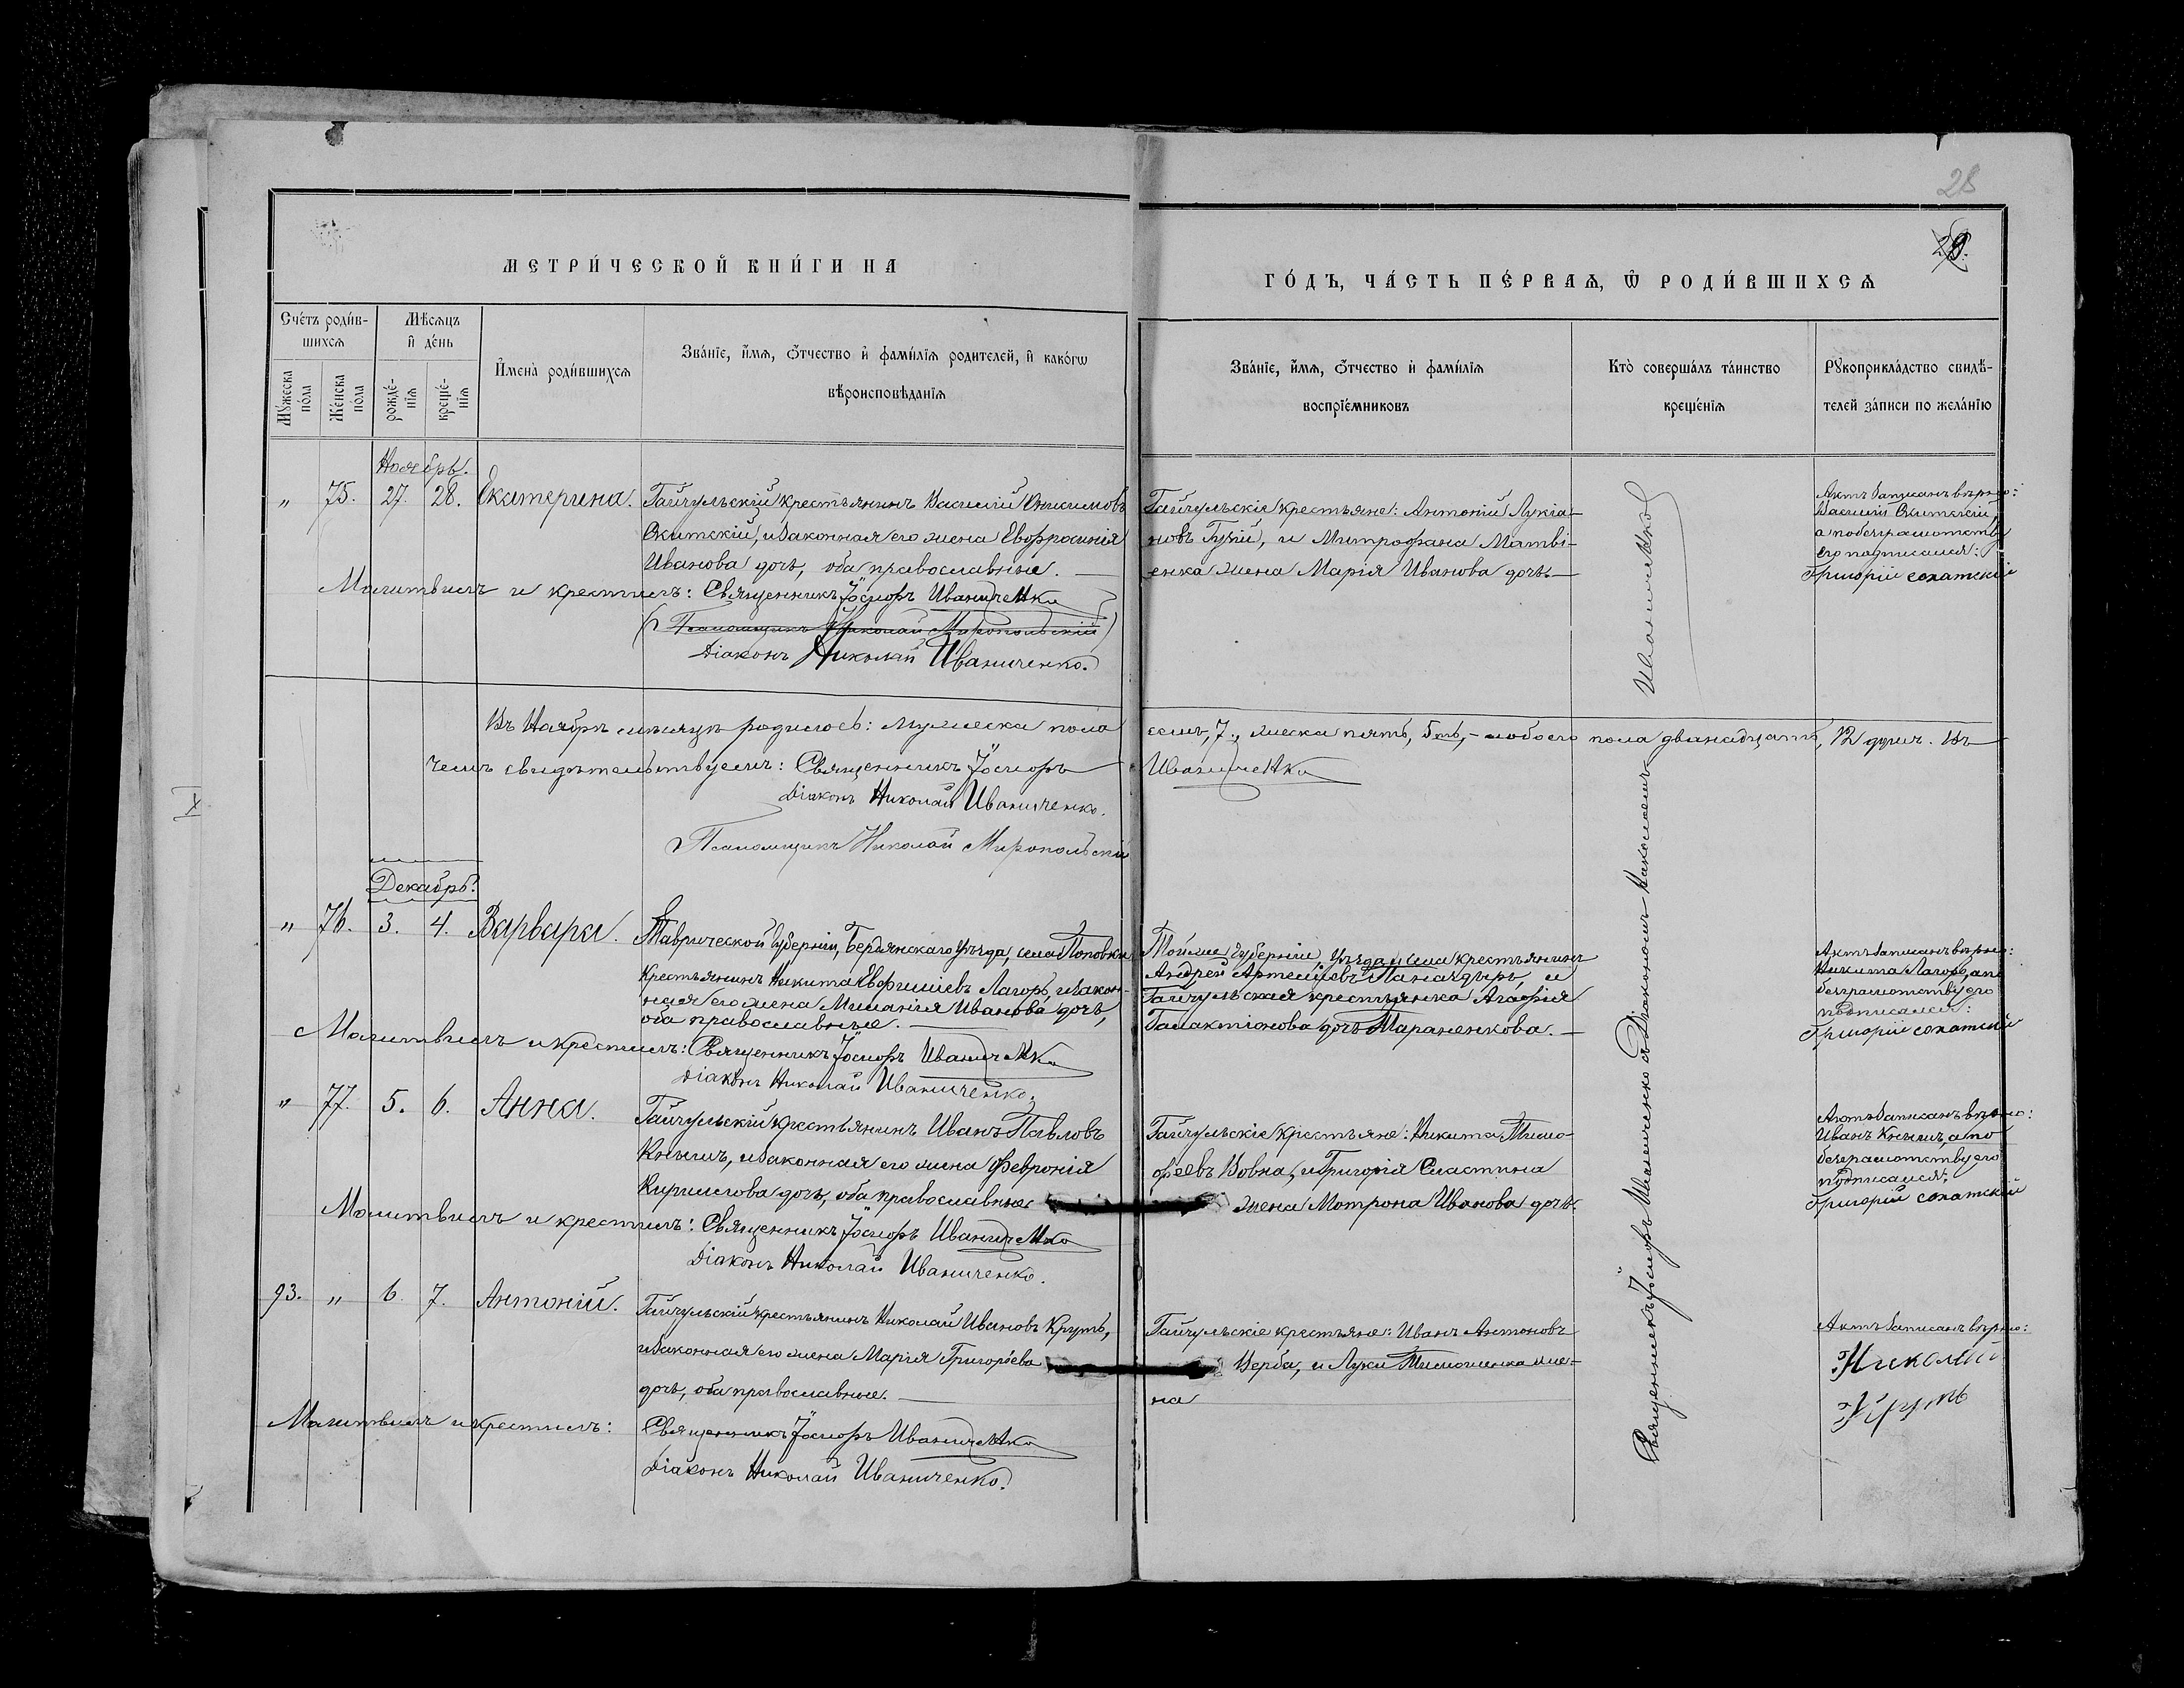 28
29.
МЕТРИ́ЧЕСКОЙ КНИ́ГИ НА
ГО́ДЪ, ЧА́СТЬ ПЕ́РВАѦ, Ѡ҆ РОДИ́ВШИХСѦ
Сче́тъ роди́в-
шихсѧ
Му́жеска по́ла
Же́нска по́ла
Мѣ́сѧцъ
и҆ де́нь
рожде́-
нїѧ
креще́-
нїѧ
И҆мена̀ роди́вшихсѧ
Зва́нїе, и҆́мѧ, ѻ҆́тчество и҆ фами́лїѧ родителей, и҆ како́гѡ
вѣроисповѣ́данїѧ
Зва́нїе, и҆́мѧ, ѻ҆́тчество и҆ фами́лїѧ
воспрїе́мниковъ
Кто̀ соверша́лъ та́инство
креще́нїѧ
Рꙋкоприкла́дство свидѣ́-
телей за́писи по жела́нїю
Ноябрь.
" 75. 27. 28. Екатерина.
Гайчульскій крестьянинъ Василій Онисимовъ
Скитскій, и законная его жена Евфросинія
Иванова дочь, оба православные.
Гайчульскіе крестьяне: Антоній Лукіа-
новъ Гузій, и Митрофана Матві-
енка жена Марія Иванова дочь
Актъ записанъ вѣрно:
Василій Скитскій,
а по безграмотству
его подписался:
Григорій сохатскій
Молитвилъ и крестилъ: Священникъ Іосифъ Иваниченко
Псаломщикъ Николай Миропольскій
Діаконъ Николай Иваниченко.
Въ Ноябрѣ мѣсяцѣ родилось: мужеска пола семь, 7., женска пять, 5ть, – обоего пола двѣнадцать, 12 душъ. Въ
чемъ свидѣтельствуемъ: Священникъ Іосифъ Иваниченко
Діаконъ Николай Иваниченко.
Псаломщикъ Николай Миропольскій
Декабрь.
" 76. 3. 4. Варвара.
Таврической Губерніи, Бердянскаго уѣзда, села Поповки
крестьянинъ Никита Евфиміевъ Лагоръ, и закон-
ная его жена Миланія Иванова дочь,
оба православные.
Той же Губерніи, уѣзда и села крестьянинъ
Андрей Артеміевъ Паназдыръ, и
Гайчульская крестьянка Агафія
Галактіонова дочь Тараненкова.
Актъ записанъ вѣрно:
Никита Лагоръ, а по
безграмотству его
подписался:
Григорій сохатскій
Молитвилъ и крестилъ: Священникъ Іосифъ Иваниченко
Діаконъ Николай Иваниченко.
" 77. 5. 6. Анна.
Гайчульскій крестьянинъ Иванъ Павловъ
Кнышъ, и законная его жена Февронія
Кириллова дочь, оба православные
Гайчульскіе крестьяне: Никита Тимо-
феевъ Вовна, и Григорія Сластина
жена Мотрона Иванова дочь.
Актъ записанъ вѣрно:
Иванъ Кнышъ, а по
безграмотству его
подписался:
Григорій сохатскій
Молитвилъ и крестилъ: Священникъ Іосифъ Иваниченко
Діаконъ Николай Иваниченко.
93. " 6. 7. Антоній.
Гайчульскій крестьянинъ Николай Ивановъ Круть,
и законная его жена Марія Григорьева
дочь, оба православные.
Гайчульскіе крестьяне: Иванъ Антоновъ
Верба, и Луки Тимошенка же-
на
Актъ записанъ вѣрно:
Николай
Круть
Молитвилъ и крестилъ: Священникъ Іосифъ Иваниченко
Діаконъ Николай Иваниченко.
Священникъ Іосифъ Иваниченко съ Діакономъ Николаемъ Иваниченко